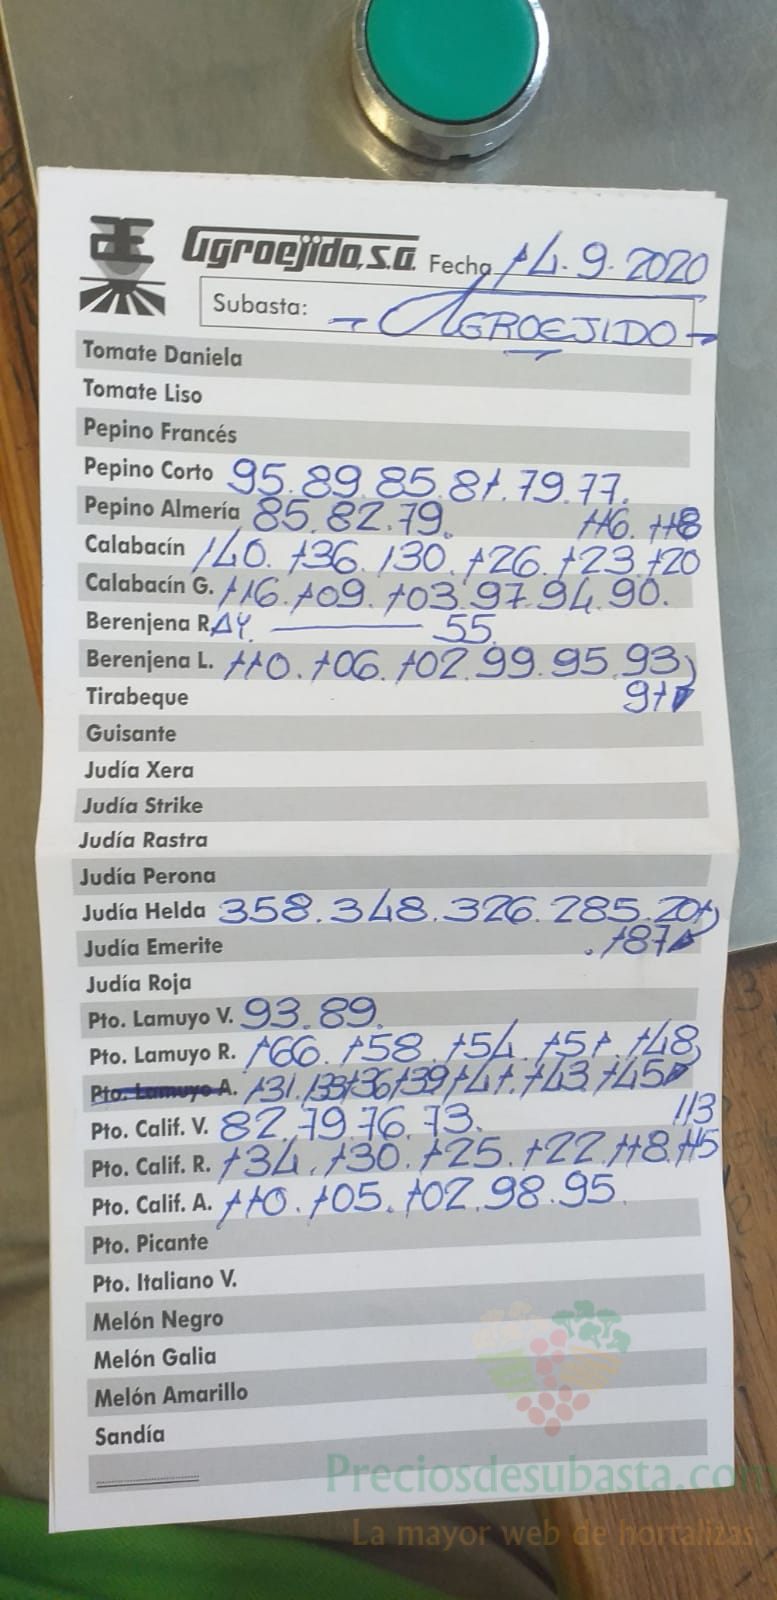 Agroejido, s.a. Fecha 14.9.2020
Subasta: - AGROEJIDO -
Tomate Daniela
Tomate Liso
Pepino Francés
Pepino Corto 95.89.85.81.79.77.
Pepino Almería 85.82.79. 116. 118
Calabacín 140. 136. 130. 126. 123. 120
Calabacín G. 116. 109. 103. 97. 94. 90.
Berenjena RAY. 55
Berenjena L. 110. 106. 102. 99. 95. 93
Tirabeque 91
Guisante
Judía Xera
Judía Strike
Judía Rastra
Judía Perona
Judía Helda 358. 348. 326. 285. 201
Judía Emerite . 187
Judía Roja
Pto. Lamuyo V. 93.89.
Pto. Lamuyo R. 166. 158. 154. 151. 148
Pto. Lamuyo A. 131. 133 136 139 141. 143. 145
Pto. Calif. V. 82.79.76.73. 113
Pto. Calif. R. 134. 130. 125. 122. 118. 115
Pto. Calif. A. 110. 105. 102. 98. 95
Pto. Picante
Pto. Italiano V.
Melón Negro
Melón Galia
Melón Amarillo
Sandía
Preciosdesubasta.com
La mayor web de hortalizas